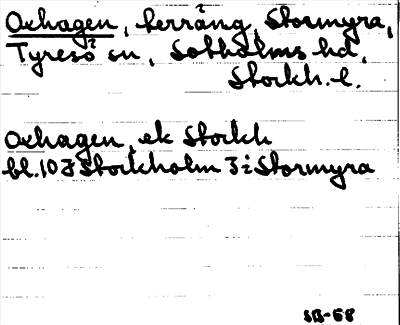 Oxhagen, terräng, Stormyra,
Tyresö sn, Sotholms hd,
Stockh. l.
Oxhagen, ek Stockh
bl. 103 Stockholm 3 i Stormyra
SB-68